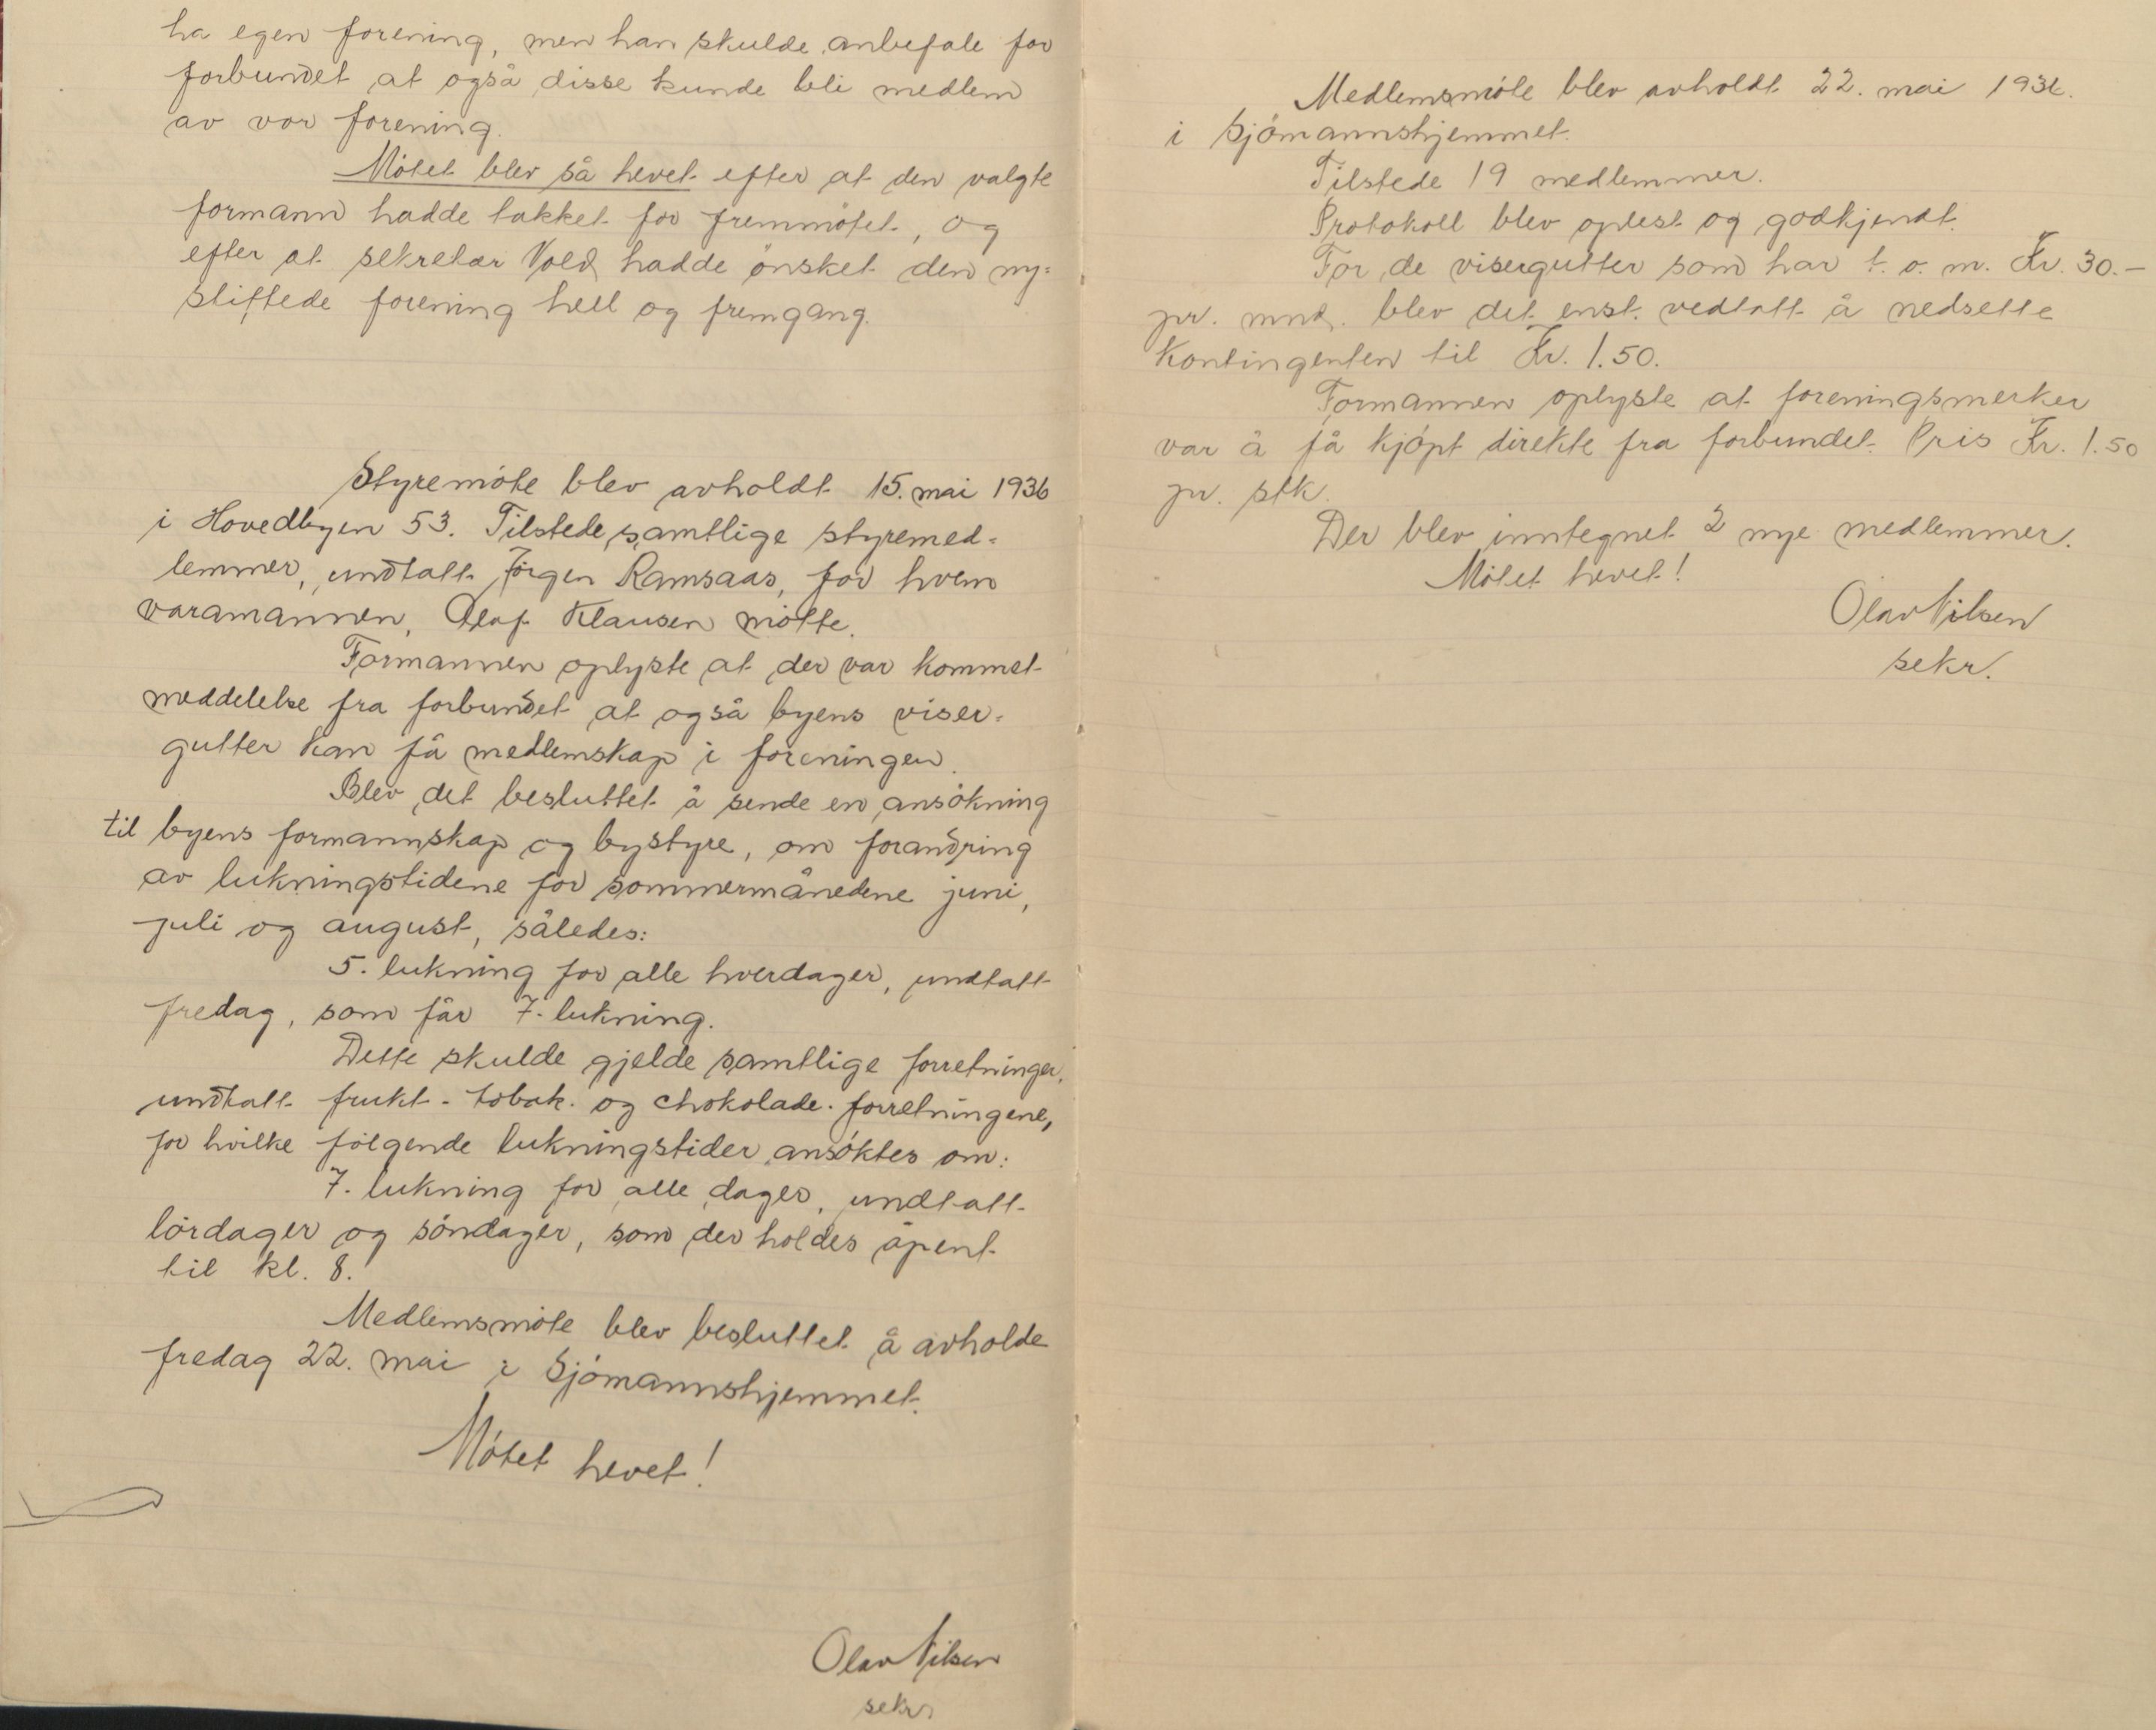 ha egen forening, men han skulde anbefale for
forbundet at også disse kunde bli medlem
av vor forening.
Møtet blev så hevet efter at den valgte
formann hadde takket for fremmøtet, og
efter at sekretær Vold hadde ønsket den ny=
stiftede forening hell og fremgang.
Styremøte blev avholdt 15. mai 1936
i Hovedbyen 53. Tilstede samtlige styremed-
lemmer, undtatt Jørgen Ramsaas, for hvem
varamannen, Olaf Klausen møtte.
Formannen oplyste at der var kommet
meddelelse fra forbundet at også byens viser-
gutter kan få medlemskap i foreningen.
Blev det besluttet å sende en ansøkning
til byens formannskap og bystyre, om forandring
av lukningstidene for sommermånedene juni,
juli og august, således:
5. lukning for alle hverdager, undtatt
fredag, som får 7. lukning.
Dette skulde gjelde samtlige forretninger,
undtatt frukt- tobak- og chokolade-forretningene,
for hvilke følgende lukningstider ansøktes om:
7. lukning for alle dager, undtatt
lørdager og søndager, som der holdes åpent
til kl. 8.
Medlemsmøte blev besluttet å avholde
fredag 22. mai i Sjømannshjemmet.
Møtet hevet!
Olav Nilsen
sekr
Medlemsmøte blev avholdt 22. mai 1936.
i Sjømannshjemmet.
Tilstede 19 medlemmer.
Protokoll blev oplest og godkjendt.
For de visergutter som har t.o.m. Kr. 30.-
pr. mnd. blev det enst. vedtatt å nedsette
Kontingenten til Kr. 1.50.
Formannen oplyste at foreningsmerker
var å få kjøpt direkte fra forbundet. Pris Kr. 1.50
pr. stk.
Der blev inntegnet 2 nye medlemmer.
Møtet hevet!
Olav Nilsen
sekr.